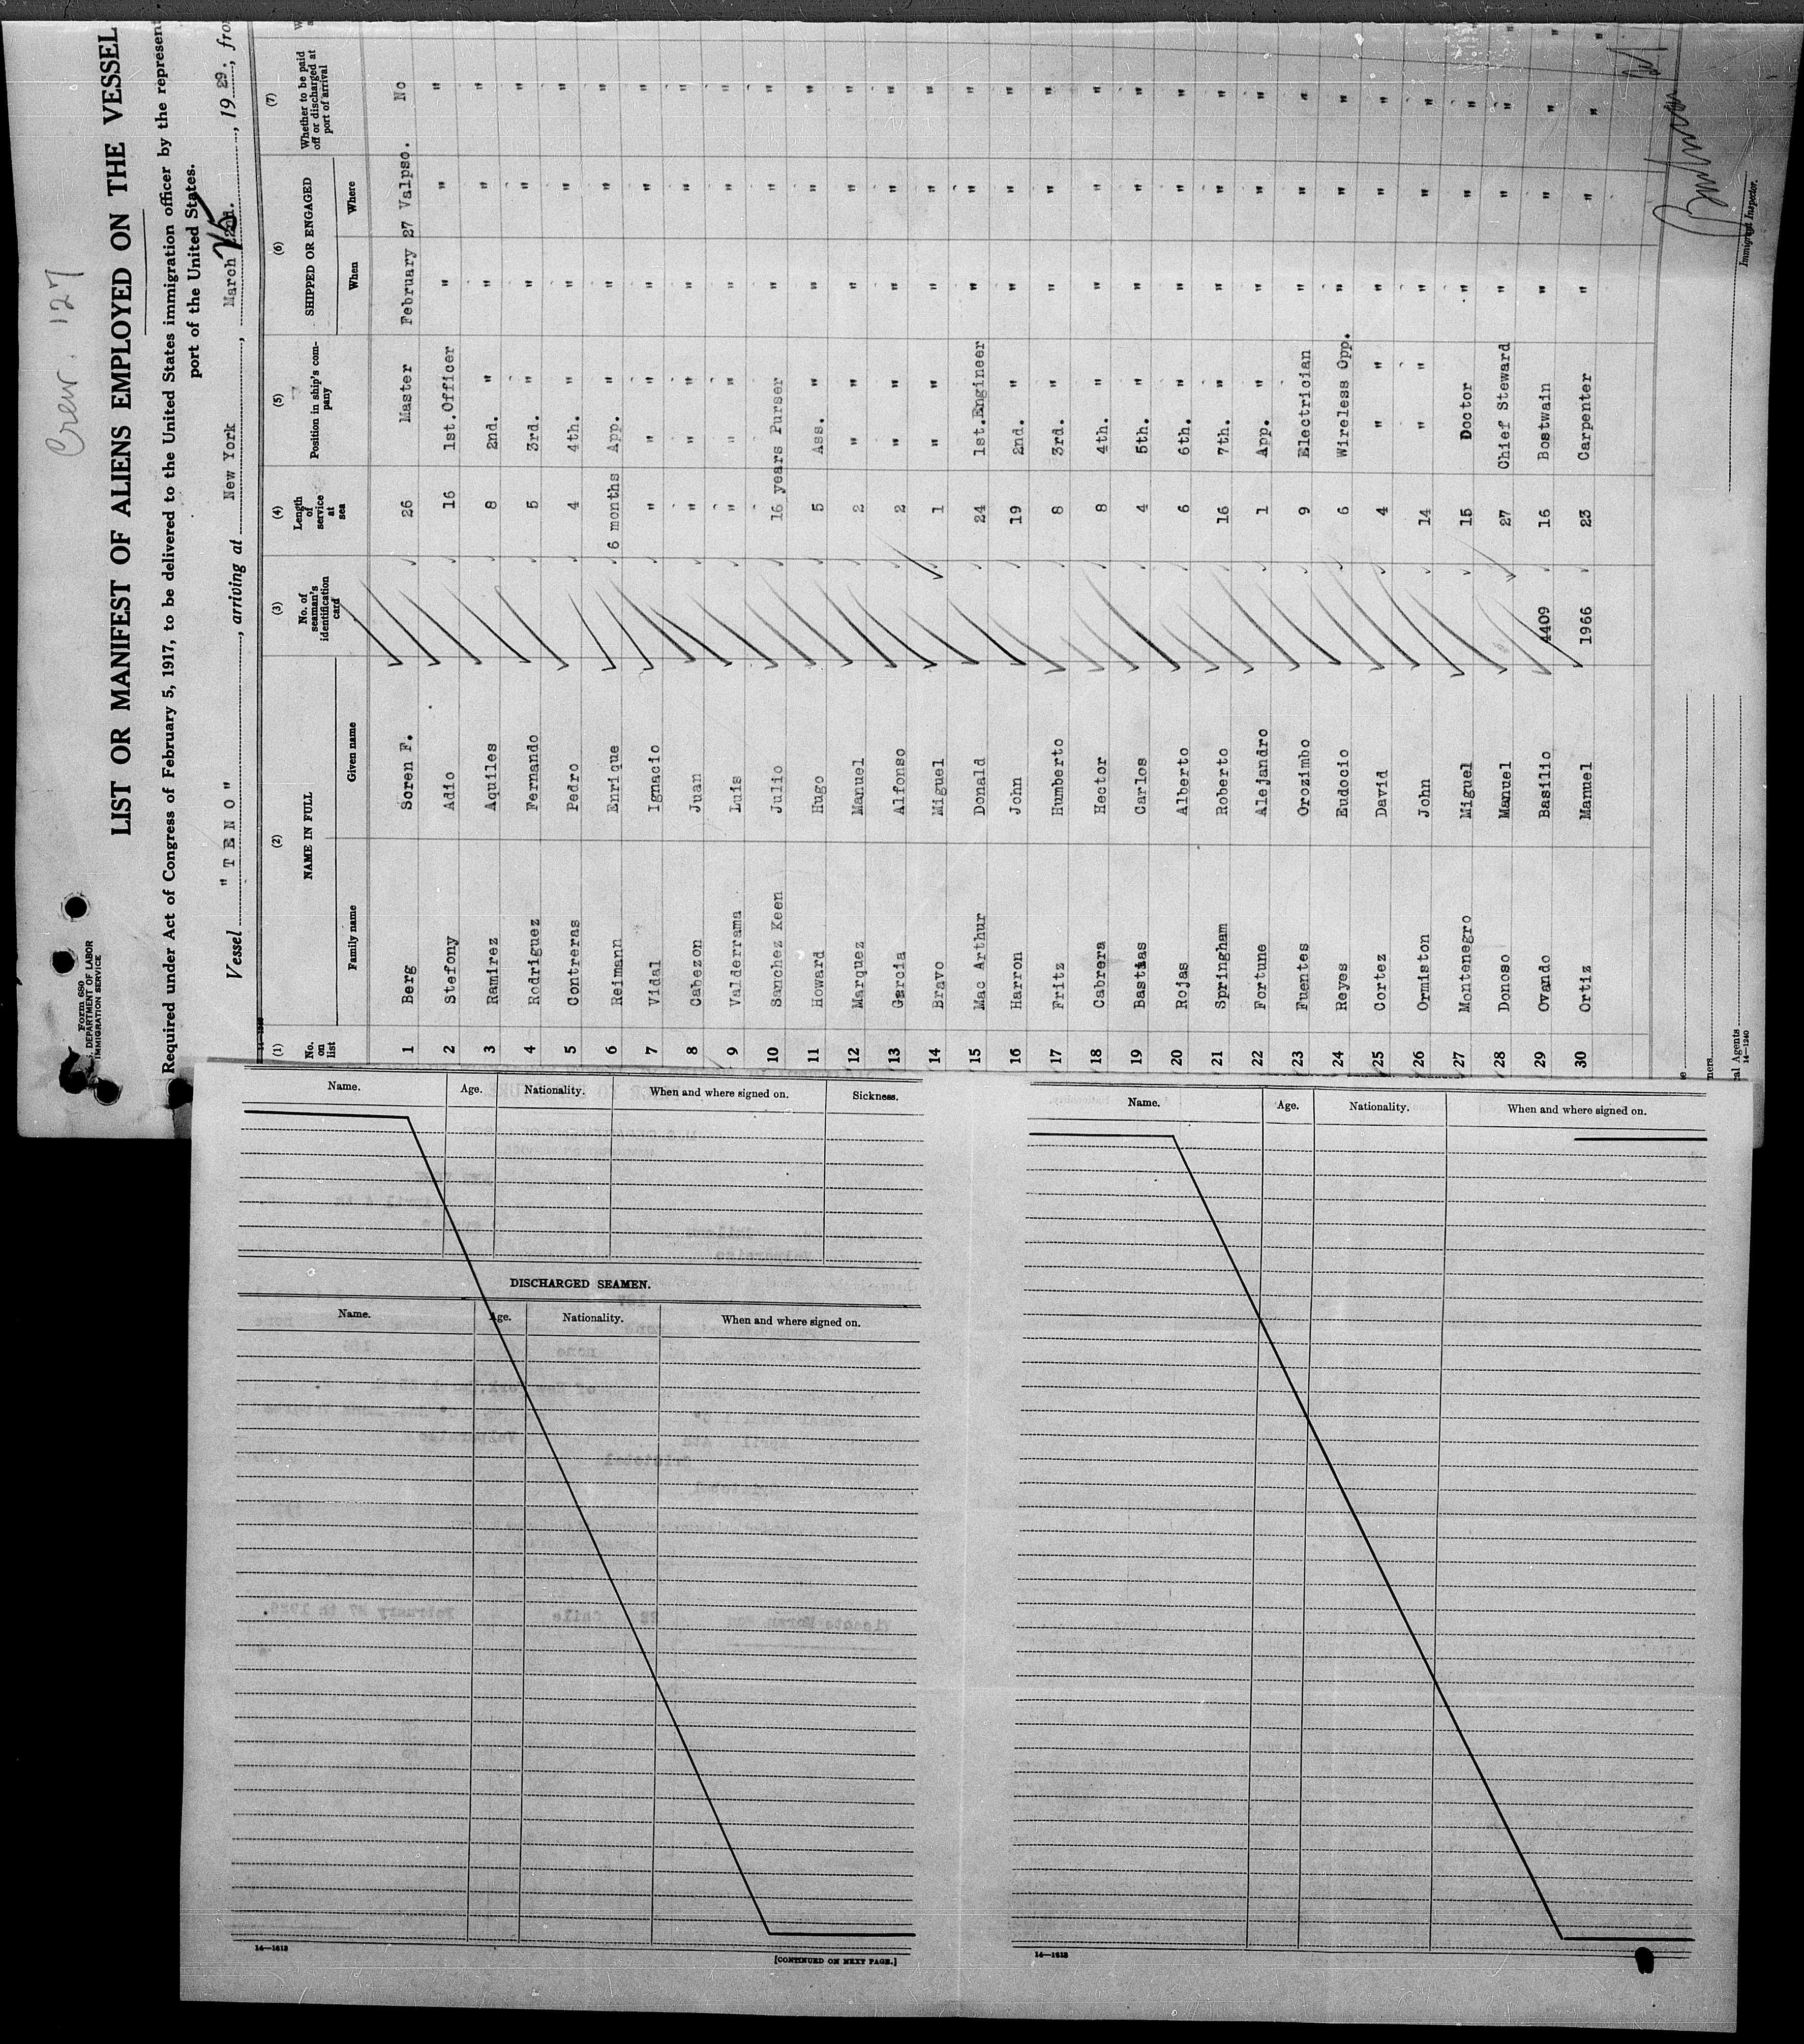 Crew. 127
Form 680
DEPARTMENT OF LABOR
IMMIGRATION SERVICE
LIST OR MANIFEST OF ALIENS EMPLOYED ON THE VESSEL
Required under Act of Congress of February 5, 1917, to be delivered to the United States immigration officer by the represen
port of the United States.
Vessel "TENO", arriving at New York, March 25, 1929, fro
(1) (2) (3) (4) (5) (6) (7)
No. on list NAME IN FULL No. of seaman's identification card Length of service at sea Position in ship's company SHIPPED OR ENGAGED Whether to be paid off or discharged at port of arrival
Family name Given name When Where
1 Berg Soren F. 26 Master February 27 Valpso. No
2 Stefony Adio 16 1st. Officer " " "
3 Ramirez Aquiles 8 2nd. " " " "
4 Rodriguez Fernando 5 3rd. " " " "
5 Contreras Pedro 4 4th. " " " "
6 Reimann Enrique 6 months App. " " " "
7 Vidal Ignacio " " " " " "
8 Cabezon Juan " " " " " "
9 Valderrama Luis " " " " " "
10 Sanchez Keen Julio 16 years Purser " " "
11 Howard Hugo 5 Ass. " " " "
12 Marquez Manuel 2 " " " " "
13 Garcia Alfonso 2 " " " " "
14 Bravo Miguel 1 " " " " "
15 Mac Arthur Donald 24 1st. Engineer " " "
16 Harron John 19 2nd. " " " "
17 Fritz Humberto 8 3rd. " " " "
18 Cabrera Hector 8 4th. " " " "
19 Bastias Carlos 4 5th. " " " "
20 Rojas Alberto 6 6th. " " " "
21 Springham Roberto 16 7th. " " " "
22 Fortune Alejandro 1 App. " " " "
23 Fuentes Orozimbo 9 Electrician " " "
24 Reyes Eudocio 6 Wireless Opp. " " "
25 Cortez David 4 " " " " "
26 Ormiston John 14 " " " " "
27 Montenegro Miguel 15 Doctor " " "
28 Donoso Manuel 27 Chief Steward " " "
29 Ovando Basilio 4409 16 Bostwain " " "
30 Ortiz Manuel 1966 23 Carpenter " " "
Immigrant Inspector.
Agents
14—1240
Name. Age. Nationality. When and where signed on. Sickness.
DISCHARGED SEAMEN.
Name. Age. Nationality. When and where signed on.
14—1613
[CONTINUED ON NEXT PAGE.]
Name. Age. Nationality. When and where signed on.
14—1613